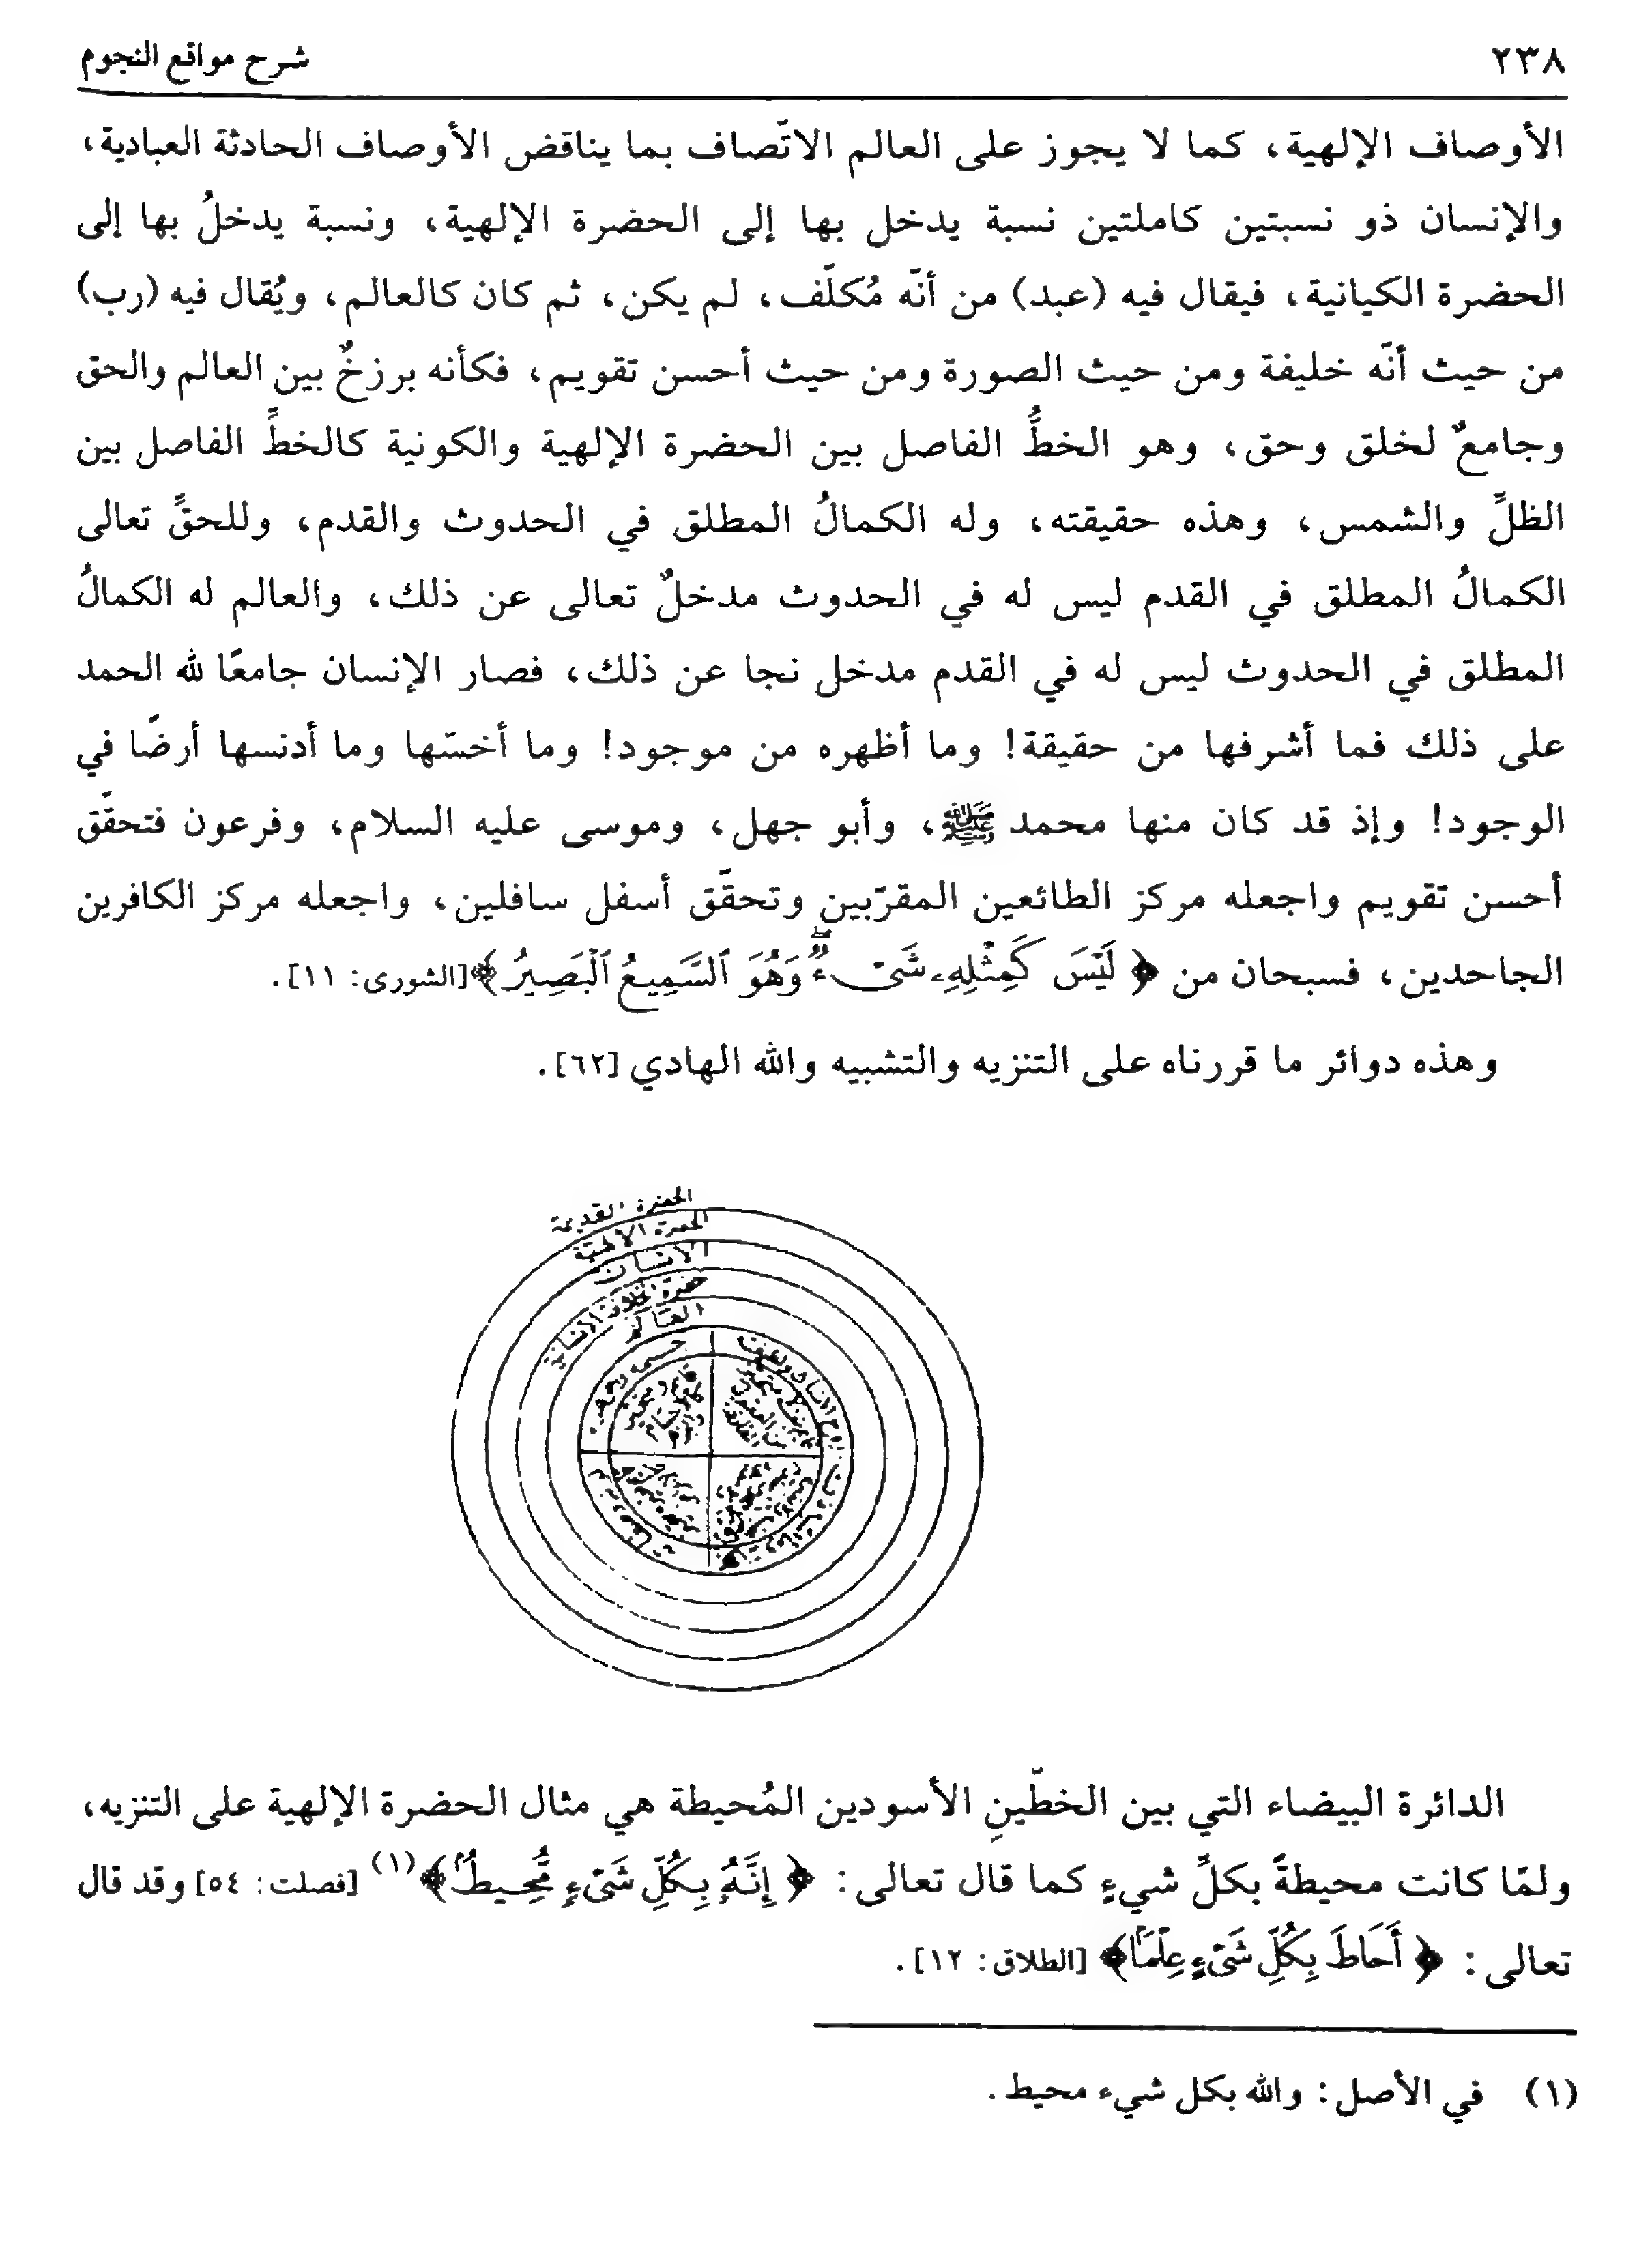 ٢٣٨
شرح مواقع النجوم
الأوصاف الإلهية، كما لا يجوز على العالم الاتّصاف بما يناقض الأوصاف الحادثة العبادية،
والإنسان ذو نسبتين كاملتين نسبة يدخل بها إلى الحضرة الإلهية، ونسبة يدخلُ بها إلى
الحضرة الكيانية، فيقال فيه (عبد) من أنّه مُكلّف، لم يكن، ثم كان كالعالم، ويُقال فيه (رب)
من حيث أنّه خليفة ومن حيث الصورة ومن حيث أحسن تقويم، فكأنه برزخٌ بين العالم والحق
وجامعٌ لخلق وحق، وهو الخطُّ الفاصل بين الحضرة الإلهية والكونية كالخطِّ الفاصل بين
الظلِّ والشمس، وهذه حقيقته، وله الكمالُ المطلق في الحدوث والقدم، وللحقِّ تعالى
الكمالُ المطلق في القدم ليس له في الحدوث مدخلٌ تعالى عن ذلك، والعالم له الكمالُ
المطلق في الحدوث ليس له في القدم مدخل نجا عن ذلك، فصار الإنسان جامعًا لله الحمد
على ذلك فما أشرفها من حقيقة! وما أظهره من موجود! وما أخسّها وما أدنسها أرضًا في
الوجود! وإذ قد كان منها محمد ﷺ، وأبو جهل، وموسى عليه السلام، وفرعون فتحقّق
أحسن تقويم واجعله مركز الطائعين المقرّبين وتحقّق أسفل سافلين، واجعله مركز الكافرين
الجاحدين، فسبحان من ﴿ لَيْسَ كَمِثْلِهِۦ شَىْءٌ ۖ وَهُوَ ٱلسَّمِيعُ ٱلْبَصِيرُ ﴾ [الشورى: ١١].
وهذه دوائر ما قررناه على التنزيه والتشبيه والله الهادي [٦٢].
الحضرة القديمة
الحضرة الإلهية
الإنسان
حضرة الخلافة الإنسانية
العالم
الدائرة البيضاء التي بين الخطّينِ الأسودين المُحيطة هي مثال الحضرة الإلهية على التنزيه،
ولمّا كانت محيطةً بكلِّ شيءٍ كما قال تعالى: ﴿ إِنَّهُۥ بِكُلِّ شَىْءٍ مُّحِيطٌۢ ﴾(١) [فصلت: ٥٤] وقد قال
تعالى: ﴿ أَحَاطَ بِكُلِّ شَىْءٍ عِلْمًۢا ﴾ [الطلاق: ١٢].
(١) في الأصل: والله بكل شيء محيط.